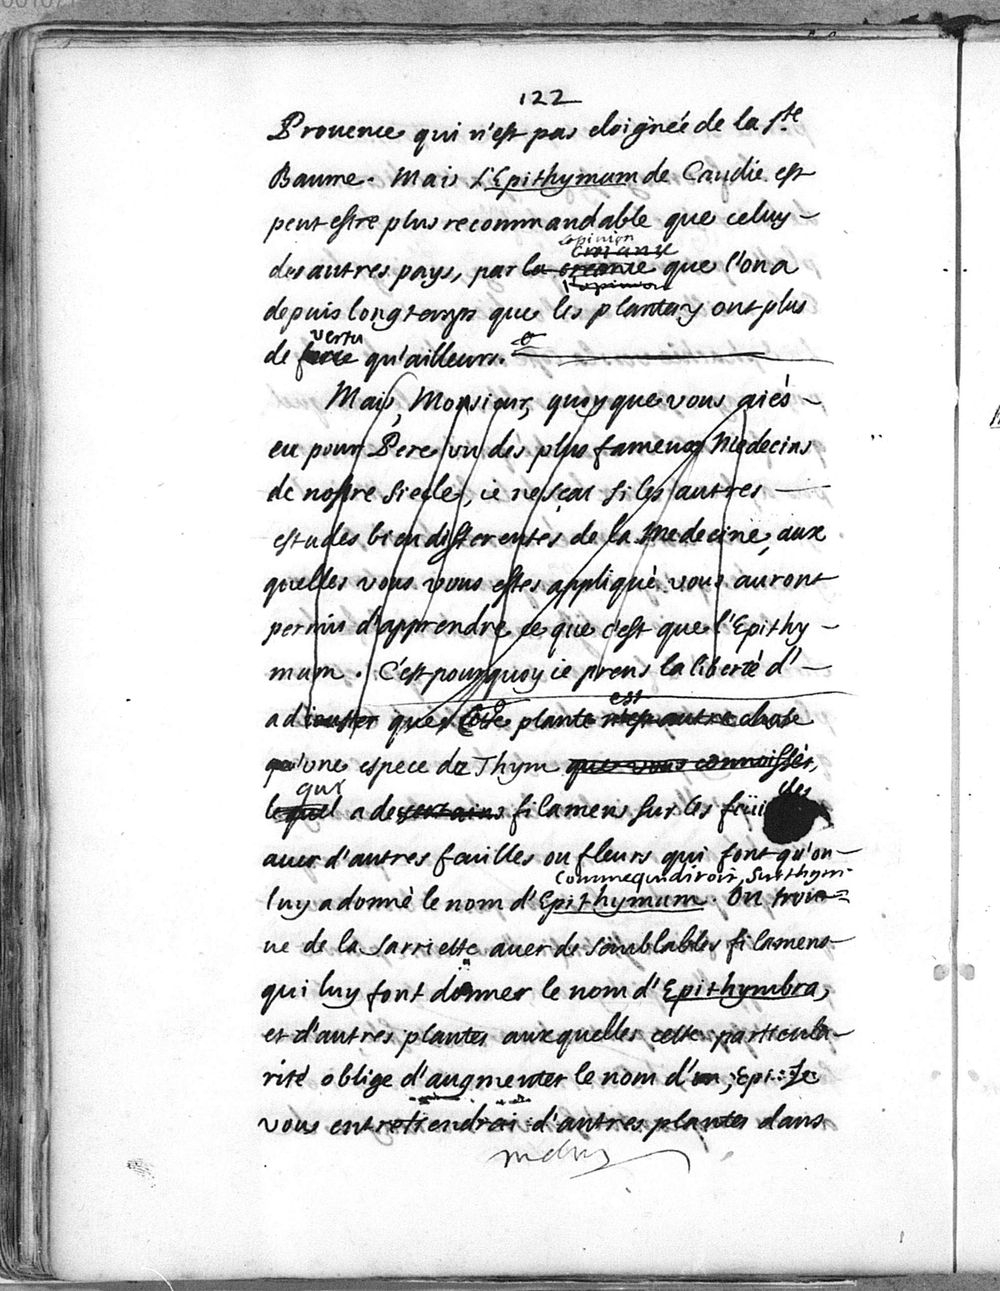 122
Prouence qui n'est pas eloignée de la Ste
Baume. Mais l'Epithymum de Candie est
peut estre plus recommandable que celuy
l'opinion
croiance
des autres pays, par la creance que l'on a
l'opinion
depuis longtemps que les plantes y ont plus
vertu
de force qu'ailleurs.
Mais, Monsieur, quoy que vous aiés
eu pour Pere un des plus fameux Medecins
de nostre siecle, ie ne sçai si les autres
estudes bien differentes de la Medecine, aux
quelles vous vous estes appliqué vous auront
permis d'apprendre ce que c'est que l'Epithy
mum. C'est pourquoy ie prens la liberté d'
est
adiouster que cette plante n'est autre chose
qu'une espece de Thym que vous connoissés,
qui des
lequel a de certains filamens sur les
auec d'autres feuilles ou fleurs qui font qu'on
comme qui diroit, sur thym.
luy a donné le nom d'Epithymum. On trou
ue de la sarriette auec de semblables filamens
qui luy font donner le nom d'Epithymbra,
et d'autres plantes auxquelles cette particula
rité oblige d'augmenter le nom d'un, Epi: Je
vous entretiendrai d'autres plantes dans